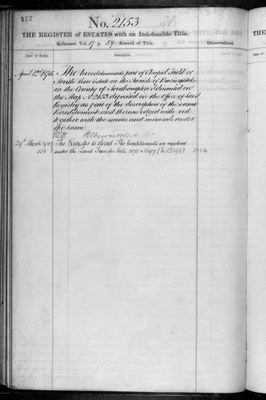 117
No. 2153
THE REGISTER of ESTATES with an Indefeasible Title.
Reference Vol. 17 p. 87 Record of Title.
Observations.
Date of Entry.
Description.
April 12th 1876
The hereditaments part of Chapel Field or
South View estate in the Parish of Basingstoke
in the County of Southampton delineated on
the Map No. 2153 deposited in the Office of Land
Registry as part of the description of the same
hereditaments and thereon edged with red
together with the mines and minerals under
the same
The Register is closed. The hereditaments are registered
under the Land Transfer Acts, 1875 & 1897